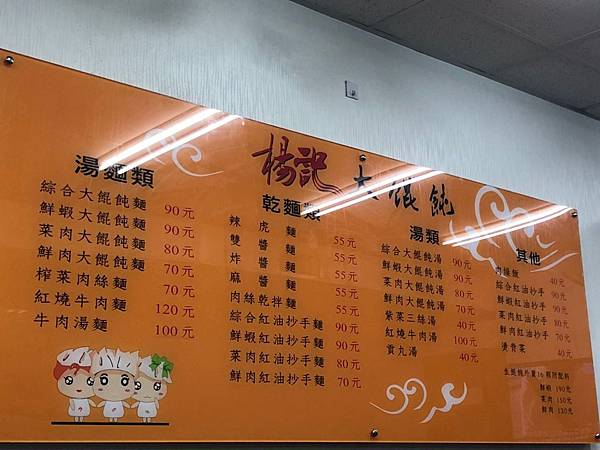 楊記大餛飩
湯麵類
綜合大餛飩麵 90元
鮮蝦大餛飩麵 90元
菜肉大餛飩麵 80元
鮮肉大餛飩麵 70元
榨菜肉絲麵 70元
紅燒牛肉麵 120元
牛肉湯麵 100元
乾麵類
辣虎麵 55元
雙醬麵 55元
炸醬麵 55元
麻醬麵 55元
肉絲乾拌麵 55元
綜合紅油抄手麵 90元
鮮蝦紅油抄手麵 90元
菜肉紅油抄手麵 80元
鮮肉紅油抄手麵 70元
湯類
綜合大餛飩湯 90元
鮮蝦大餛飩湯 90元
菜肉大餛飩湯 80元
鮮肉大餛飩湯 70元
紫菜三絲湯 40元
紅燒牛肉湯 100元
貢丸湯 40元
其他
肉燥飯 40元
綜合紅油抄手 90元
鮮蝦紅油抄手 90元
菜肉紅油抄手 80元
鮮肉紅油抄手 70元
燙青菜 40元
生餛飩外賣16顆附配料
鮮蝦 190元
菜肉 150元
鮮肉 130元